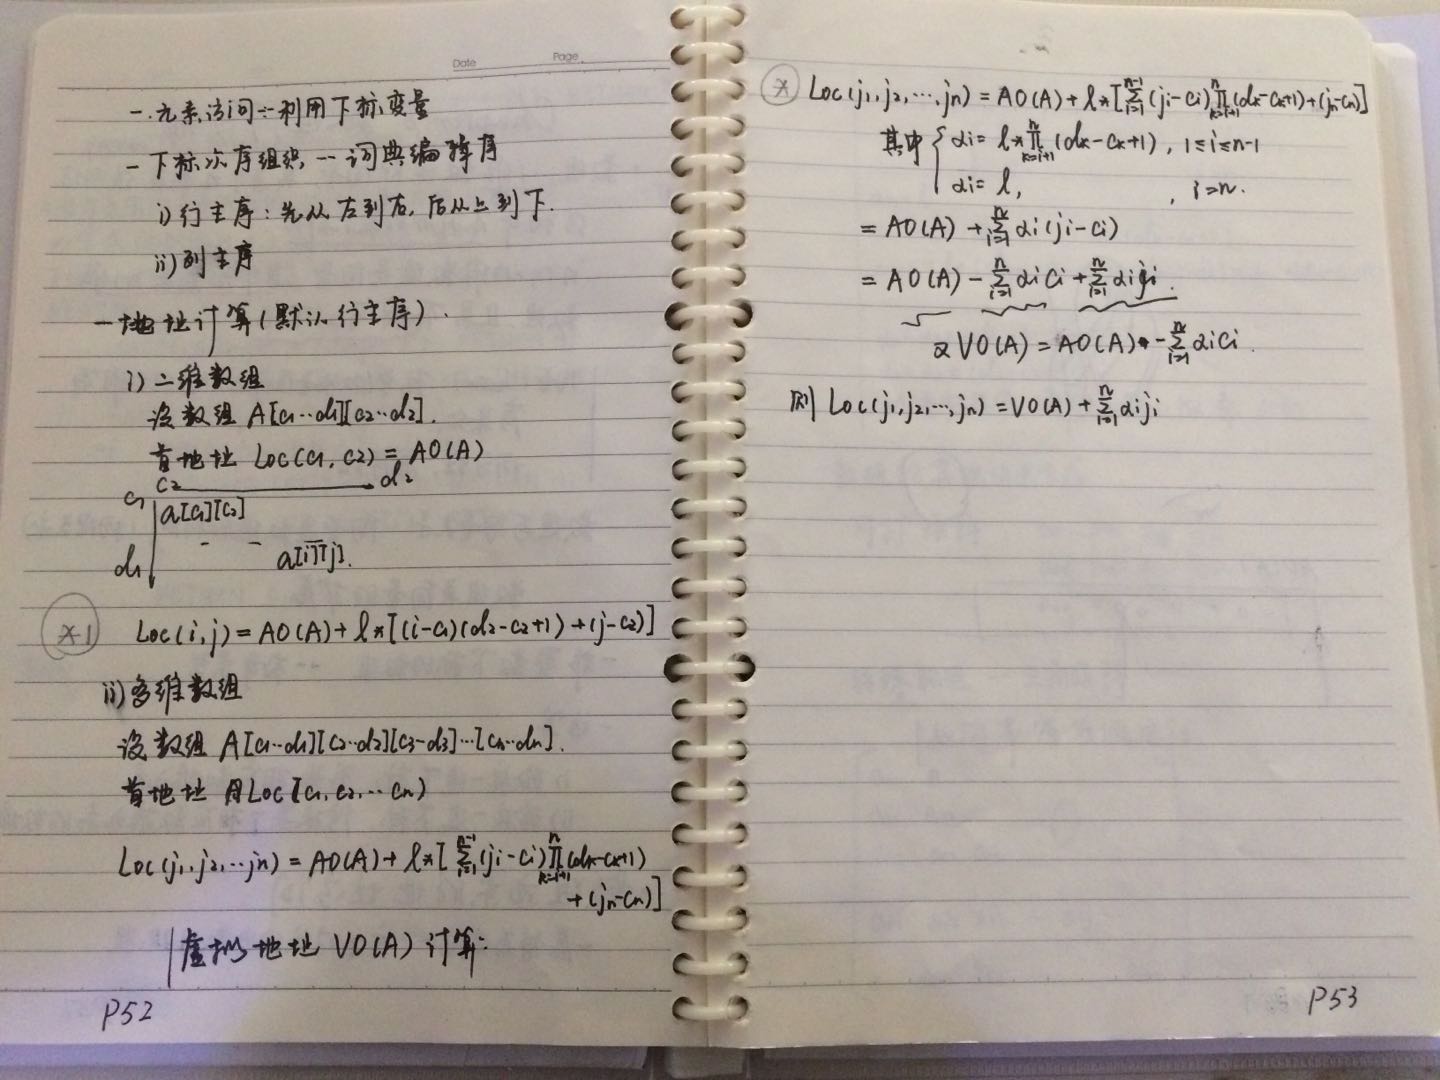 Date Page
一. 元素访问:利用下标变量
一 下标次序组织, -- 词典编排序
i) 行主序: 先从左到右, 后从上到下.
ii) 列主序
一 地址计算(默认行主序).
i) 二维数组
设数组 A[c₁‥d₁][c₂‥d₂].
首地址 Loc(c₁, c₂) = AO(A)
c₂ d₂
c₁ a[c₁][c₂]
d₁ a[i][j].
*1 Loc(i,j) = AO(A) + l*[(i-c₁)(d₂-c₂+1)+(j-c₂)]
ii) 多维数组
设数组 A[c₁‥d₁][c₂‥d₂][c₃-d₃]…[cₙ‥dₙ].
首地址 Loc[c₁, c₂, … cₙ)
Loc(j₁, j₂, … jₙ) = AO(A) + l*[∑ᵢ₌₁ⁿ⁻¹(jᵢ-cᵢ)∏ₖ₌ᵢ₊₁ⁿ(dₖ-cₖ+1)
+(jₙ-cₙ)]
虚拟地址 VO(A) 计算:
P52
* Loc(j₁, j₂, …, jₙ) = AO(A) + l*[∑ᵢ₌₁ⁿ⁻¹(jᵢ-cᵢ)∏ₖ₌ᵢ₊₁ⁿ(dₖ-cₖ+1)+(jₙ-cₙ)]
其中 { αᵢ = l*∏ₖ₌ᵢ₊₁ⁿ(dₖ-cₖ+1), 1≤i≤n-1
αᵢ = l, , i=n.
= AO(A) + ∑ᵢ₌₁ⁿ αᵢ(jᵢ-cᵢ)
= AO(A) - ∑ᵢ₌₁ⁿ αᵢcᵢ + ∑ᵢ₌₁ⁿ αᵢjᵢ.
VO(A) = AO(A) - ∑ᵢ₌₁ⁿ αᵢcᵢ.
则 Loc(j₁, j₂, …, jₙ) = VO(A) + ∑ᵢ₌₁ⁿ αᵢjᵢ
P53